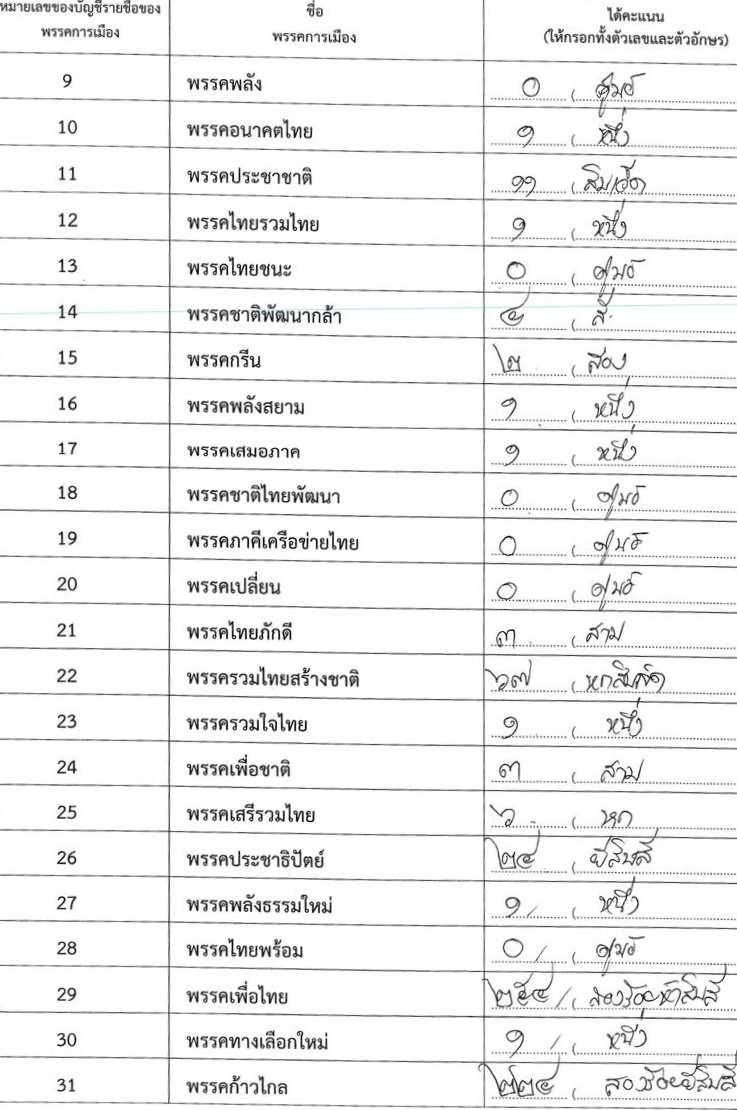 หมายเลขของบัญชีรายชื่อของ ชื่อ ได้คะแนน
พรรคการเมือง พรรคการเมือง (ให้กรอกทั้งตัวเลขและตัวอักษร)
9 พรรคพลัง ๐ ( ศูนย์
10 พรรคอนาคตไทย ๑ ( หนึ่ง
11 พรรคประชาชาติ ๑๑ ( สิบเอ็ด
12 พรรคไทยรวมไทย ๑ ( หนึ่ง
13 พรรคไทยชนะ ๐ ( ศูนย์
14 พรรคชาติพัฒนากล้า ๔ ( สี่
15 พรรคกรีน ๒ ( สอง
16 พรรคพลังสยาม ๑ ( หนึ่ง
17 พรรคเสมอภาค ๑ ( หนึ่ง
18 พรรคชาติไทยพัฒนา ๐ ( ศูนย์
19 พรรคภาคีเครือข่ายไทย ๐ ( ศูนย์
20 พรรคเปลี่ยน ๐ ( ศูนย์
21 พรรคไทยภักดี ๓ ( สาม
22 พรรครวมไทยสร้างชาติ ๖๗ ( หกสิบเจ็ด
23 พรรครวมใจไทย ๑ ( หนึ่ง
24 พรรคเพื่อชาติ ๓ ( สาม
25 พรรคเสรีรวมไทย ๖ ( หก
26 พรรคประชาธิปัตย์ ๒๔ ( ยี่สิบสี่
27 พรรคพลังธรรมใหม่ ๑ ( หนึ่ง
28 พรรคไทยพร้อม ๐ ( ศูนย์
29 พรรคเพื่อไทย ๒๕๔ ( สองร้อยห้าสิบสี่
30 พรรคทางเลือกใหม่ ๑ ( หนึ่ง
31 พรรคก้าวไกล ๒๒๔ ( สองร้อยยี่สิบสี่